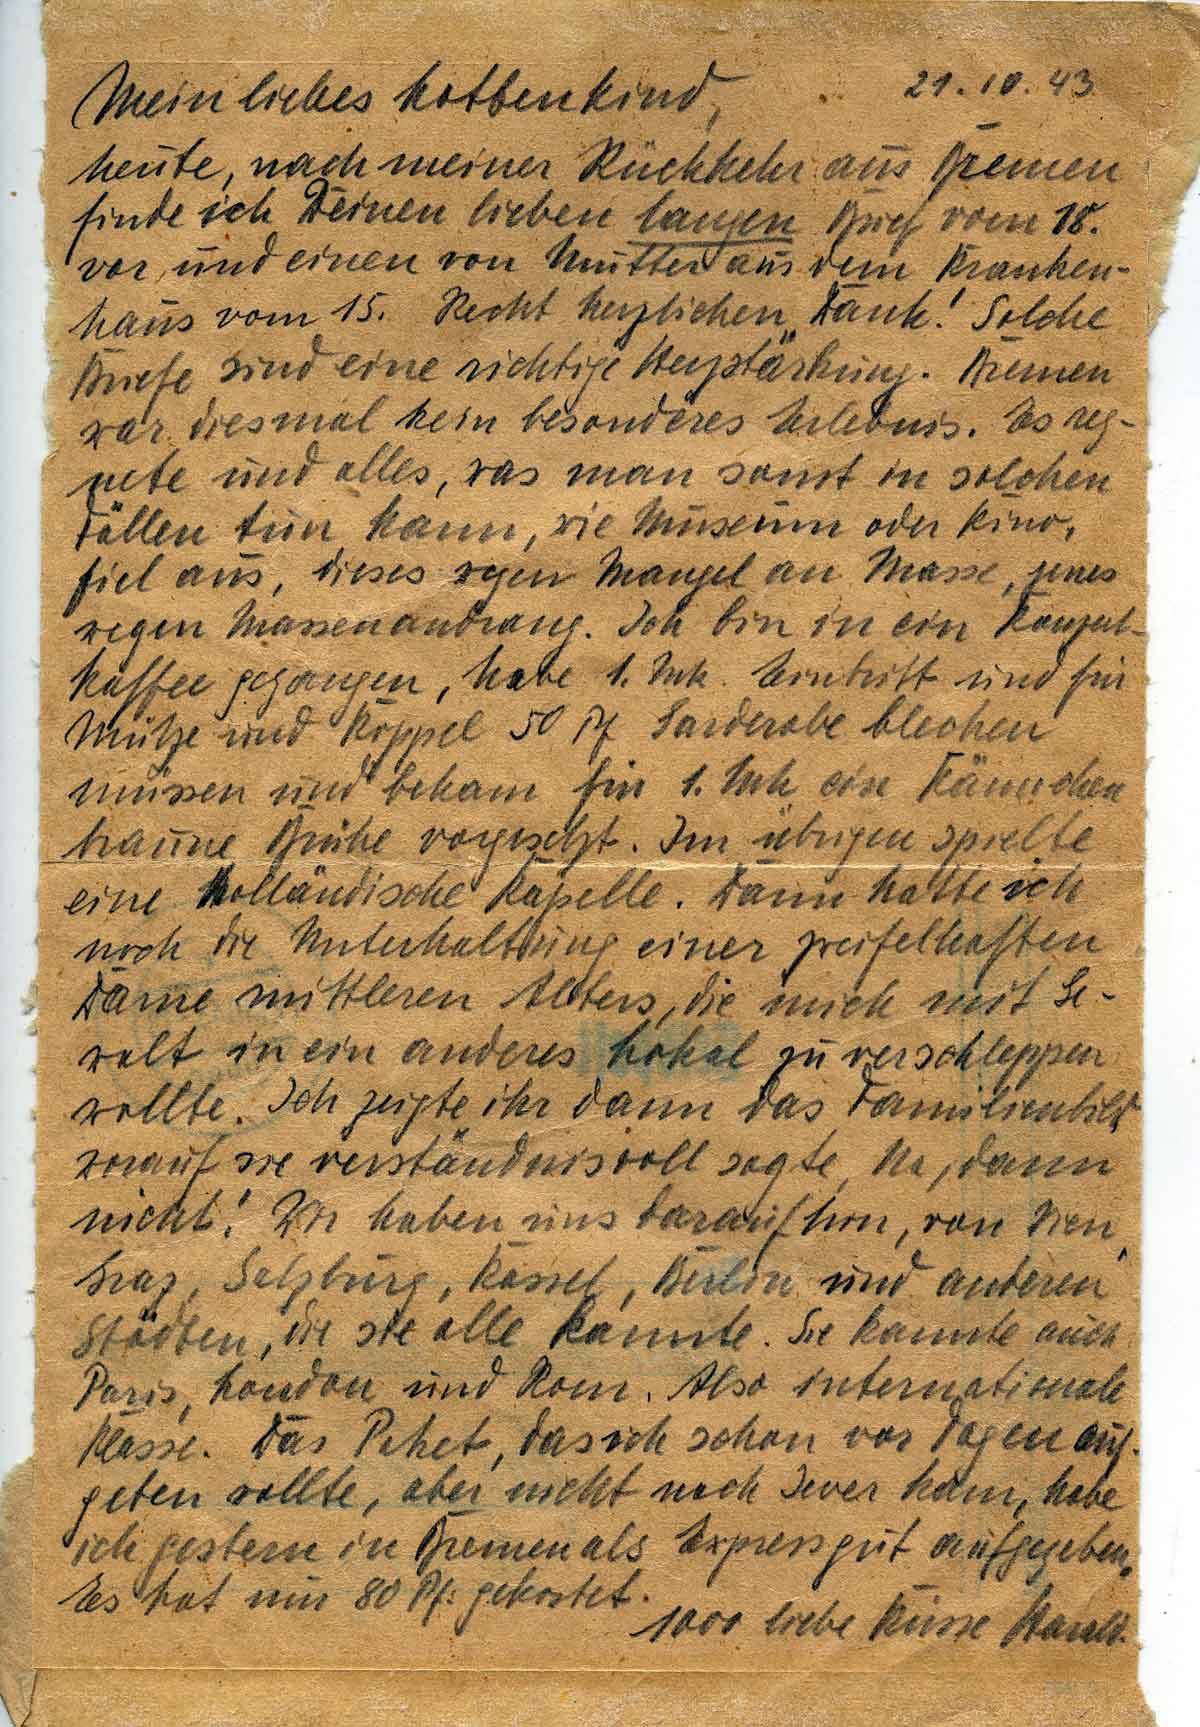 21.10.43
Mein liebes Lottenkind,
heute, nach meiner Rückkehr aus Bremen
finde ich Deinen lieben langen Brief vom 18.
vor und einen von Mutter aus dem Kranken-
haus vom 15. Recht herzlichen Dank! Solche
Briefe sind eine richtige Herzstärkung. Bremen
war diesmal kein besonderes Erlebnis. Es reg-
nete und alles, was man sonst in solchen
Fällen tun kann, wie Museum oder Kino,
fiel aus, dieses wegen Mangel an Masse, jenes
wegen Massenandrang. Ich bin in ein Konzert-
kaffee gegangen, habe 1. Mk. Eintritt und für
Mütze und Koppel 50 Pf Garderobe blechen
müssen und bekam für 1. Mk eine Kännchen
braune Brühe vorgesetzt. Im übrigen spielte
eine holländische Kapelle. Dann hatte ich
noch die Unterhaltung einer zweifelhaften
Dame mittleren Alters, die mich mit Ge-
walt in ein anderes Lokal zu verschleppen
wollte. Ich zeigte ihr dann das Familienbild
worauf sie verständnisvoll sagte, Na, dann
nicht! Wir haben uns daraufhin, von Wien,
Graz, Salzburg, Kassel, Berlin und anderen
Städten, die sie alle kannte. Sie kannte auch
Paris, London und Rom. Also internationale
Klasse. Das Paket, das ich schon vor Tagen auf-
geben wollte, aber nicht nach Jever kam, habe
ich gestern in Bremen als Expressgut aufgegeben.
Es hat nur 80 Pf. gekostet.
1000 liebe Küsse Harald.